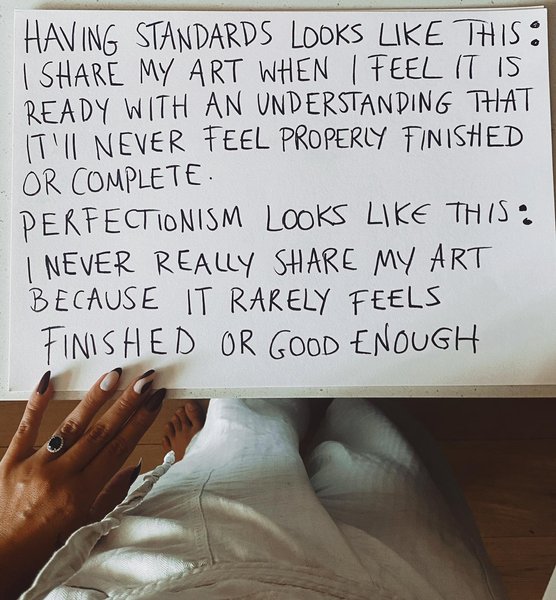 HAVING STANDARDS LOOKS LIKE THIS:
I SHARE MY ART WHEN I FEEL IT IS
READY WITH AN UNDERSTANDING THAT
IT'll NEVER FEEL PROPERLY FINISHED
OR COMPLETE.
PERFECTIONISM LOOKS LIKE THIS:
I NEVER REALLY SHARE MY ART
BECAUSE IT RARELY FEELS
FINISHED OR GOOD ENOUGH